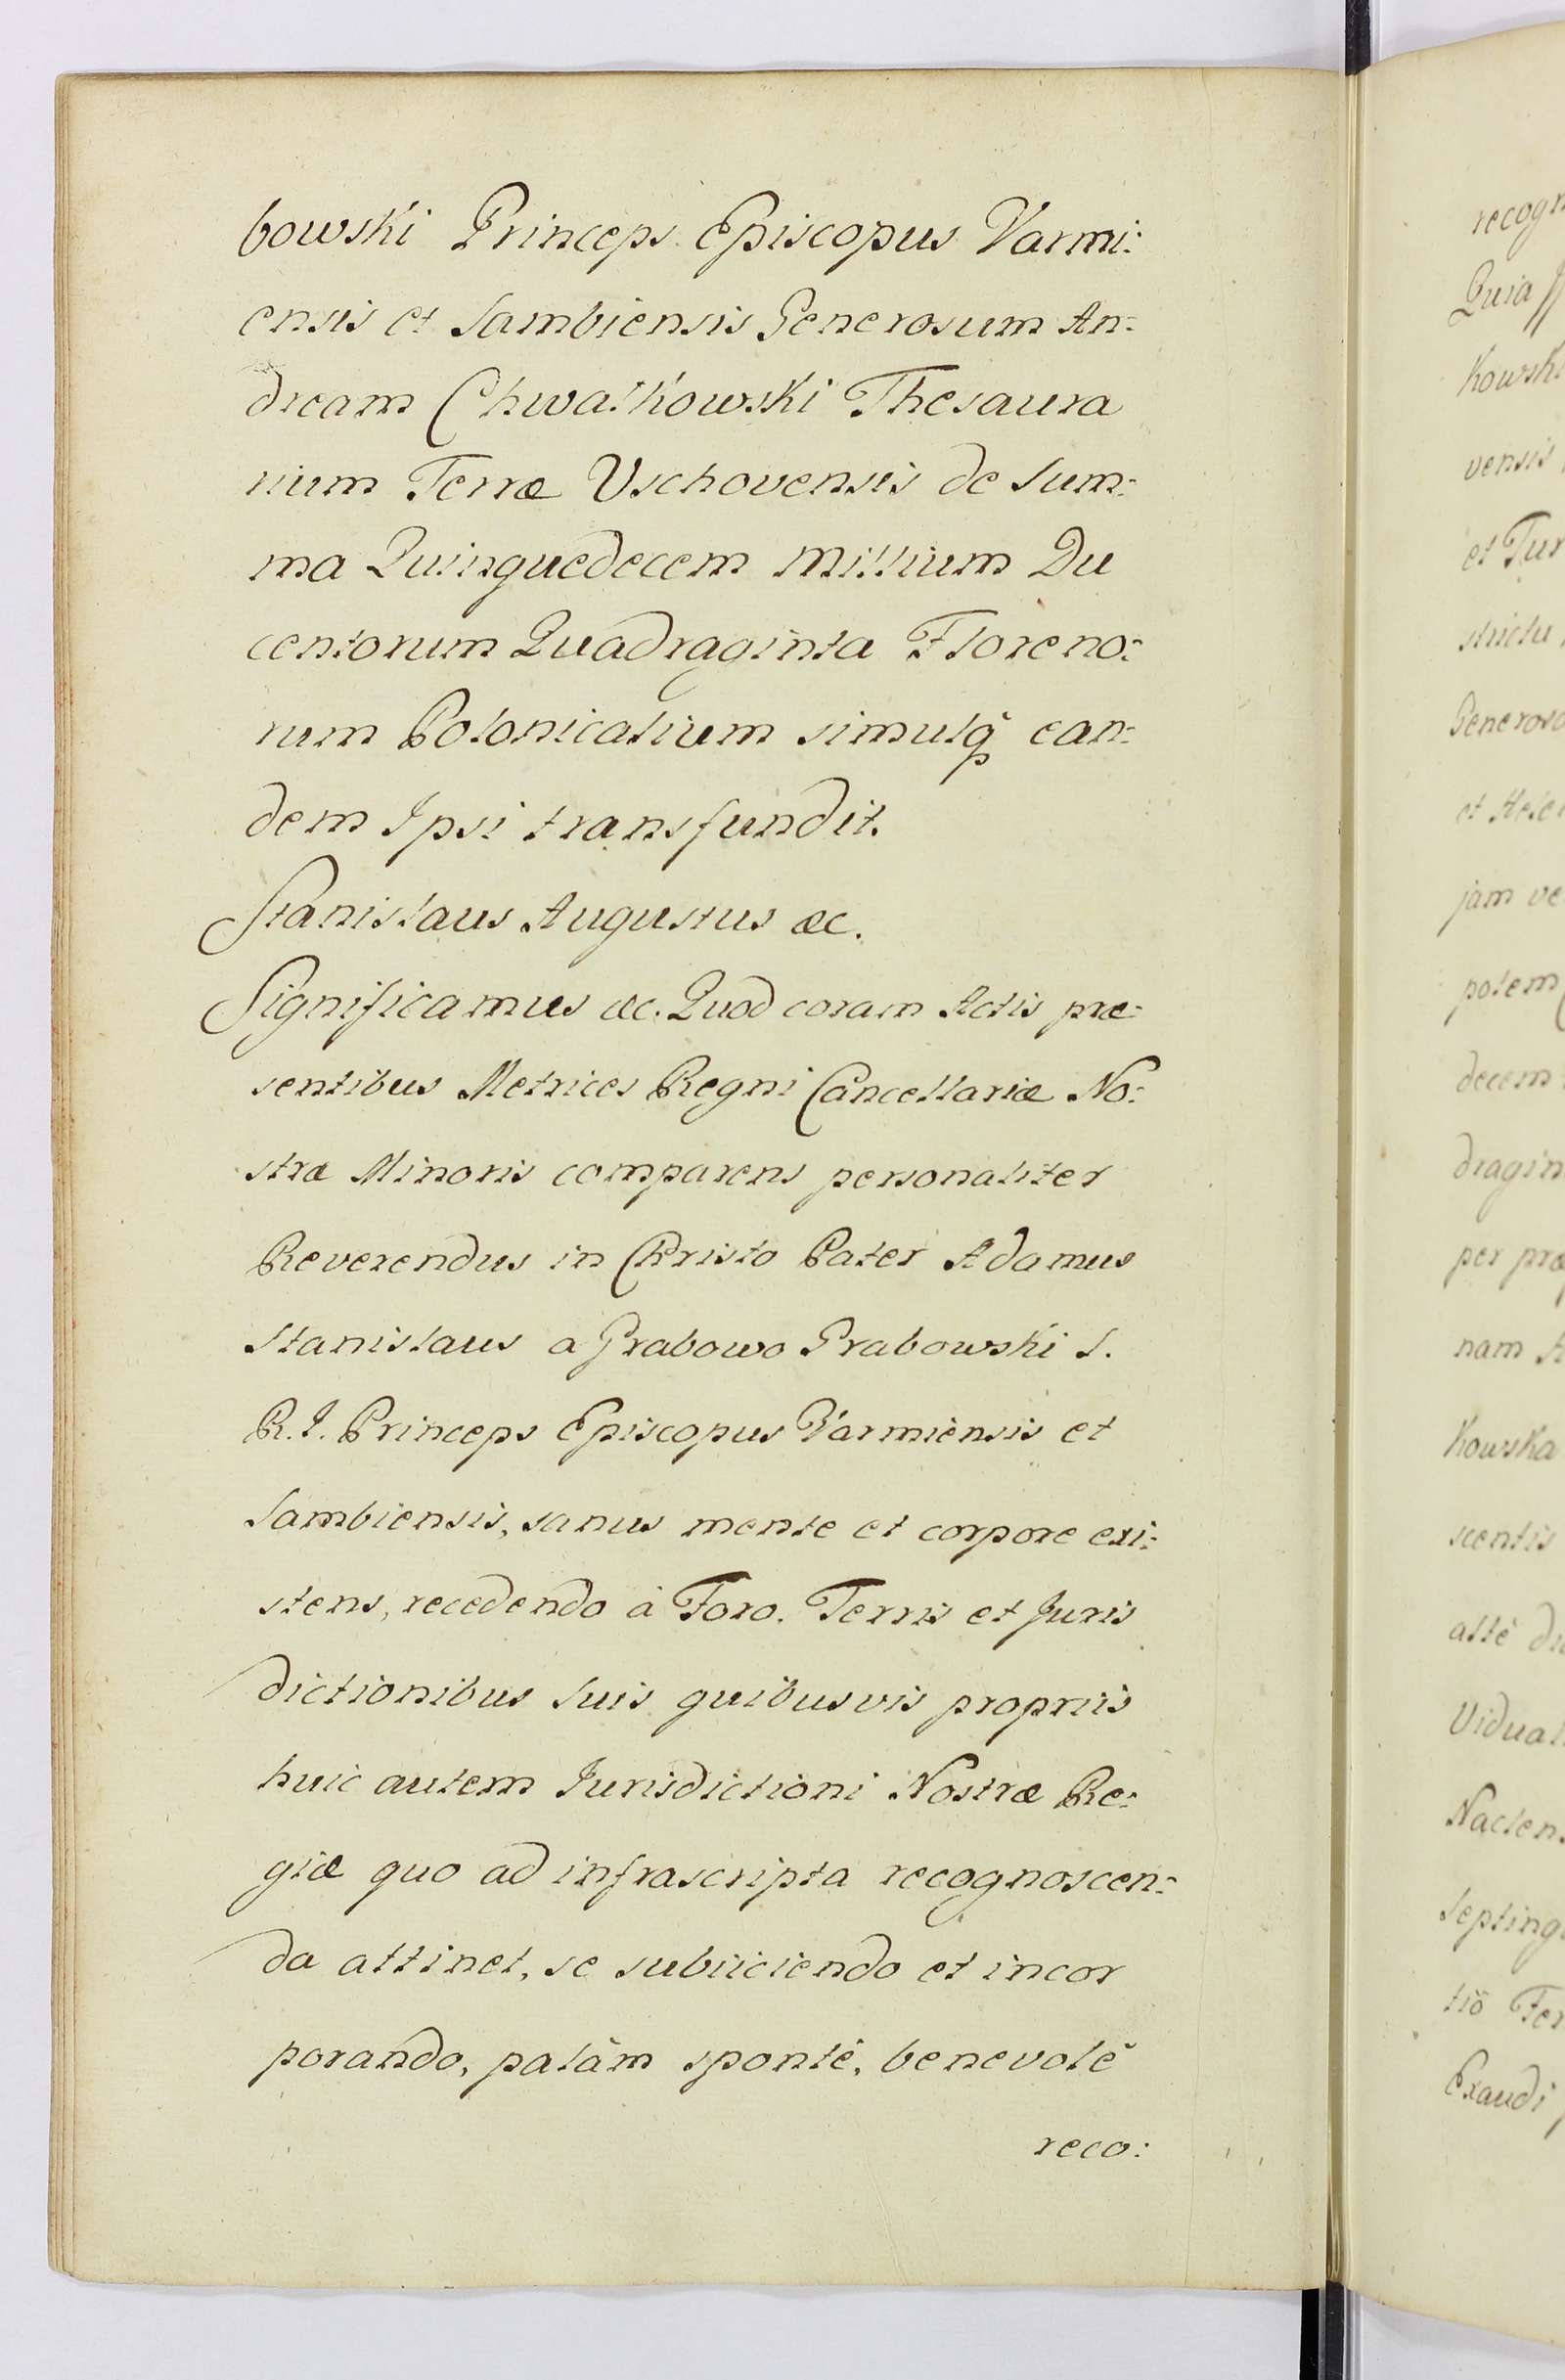 bowski Princeps Episcopus Varmi:
ensis et Sambiensis Generosum An:
dream Chwałkowski Thesaura
rium Terræ Vschovensis de Sum:
ma Quinquedecem Millium Du
centorum Quadraginta Floreno:
rum Polonicalium simulq̃ ean:
dem Ipsi transfundit.
Stanislaus Augustus &c.
Significamus &c. Quod coram Actis præ:
sentibus Metrices Regni Cancellariæ No:
stræ Minoris comparens personaliter
Reverendus in Christo Pater Adamus
Stanislaus a Grabowo Grabowski S.
R. I. Princeps Episcopus Varmiensis et
Sambiensis, sanus mente et corpore exi:
stens, recedendo à Foro. Terris et Juris
dictionibus suis quibusvis propriis
huic autem Jurisdictioni Nostræ Re:
giæ quo ad infrascripta recognoscen:
da attinet, se subiiciendo et incor
porando, palàm sponté, benevolé
reco:
recogn
Quia
kowski
vensis
et Tur
strictu
Generoso
jam ve
potem
decem
dragin
per præ
nam A
kowska
scentis
atté du
Vidual
Nacten
septing
Exaudi